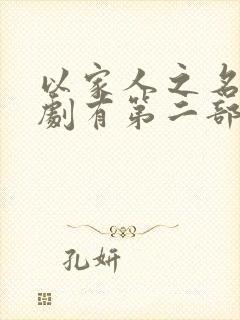 以家人之名
劇有第二部
孔妍